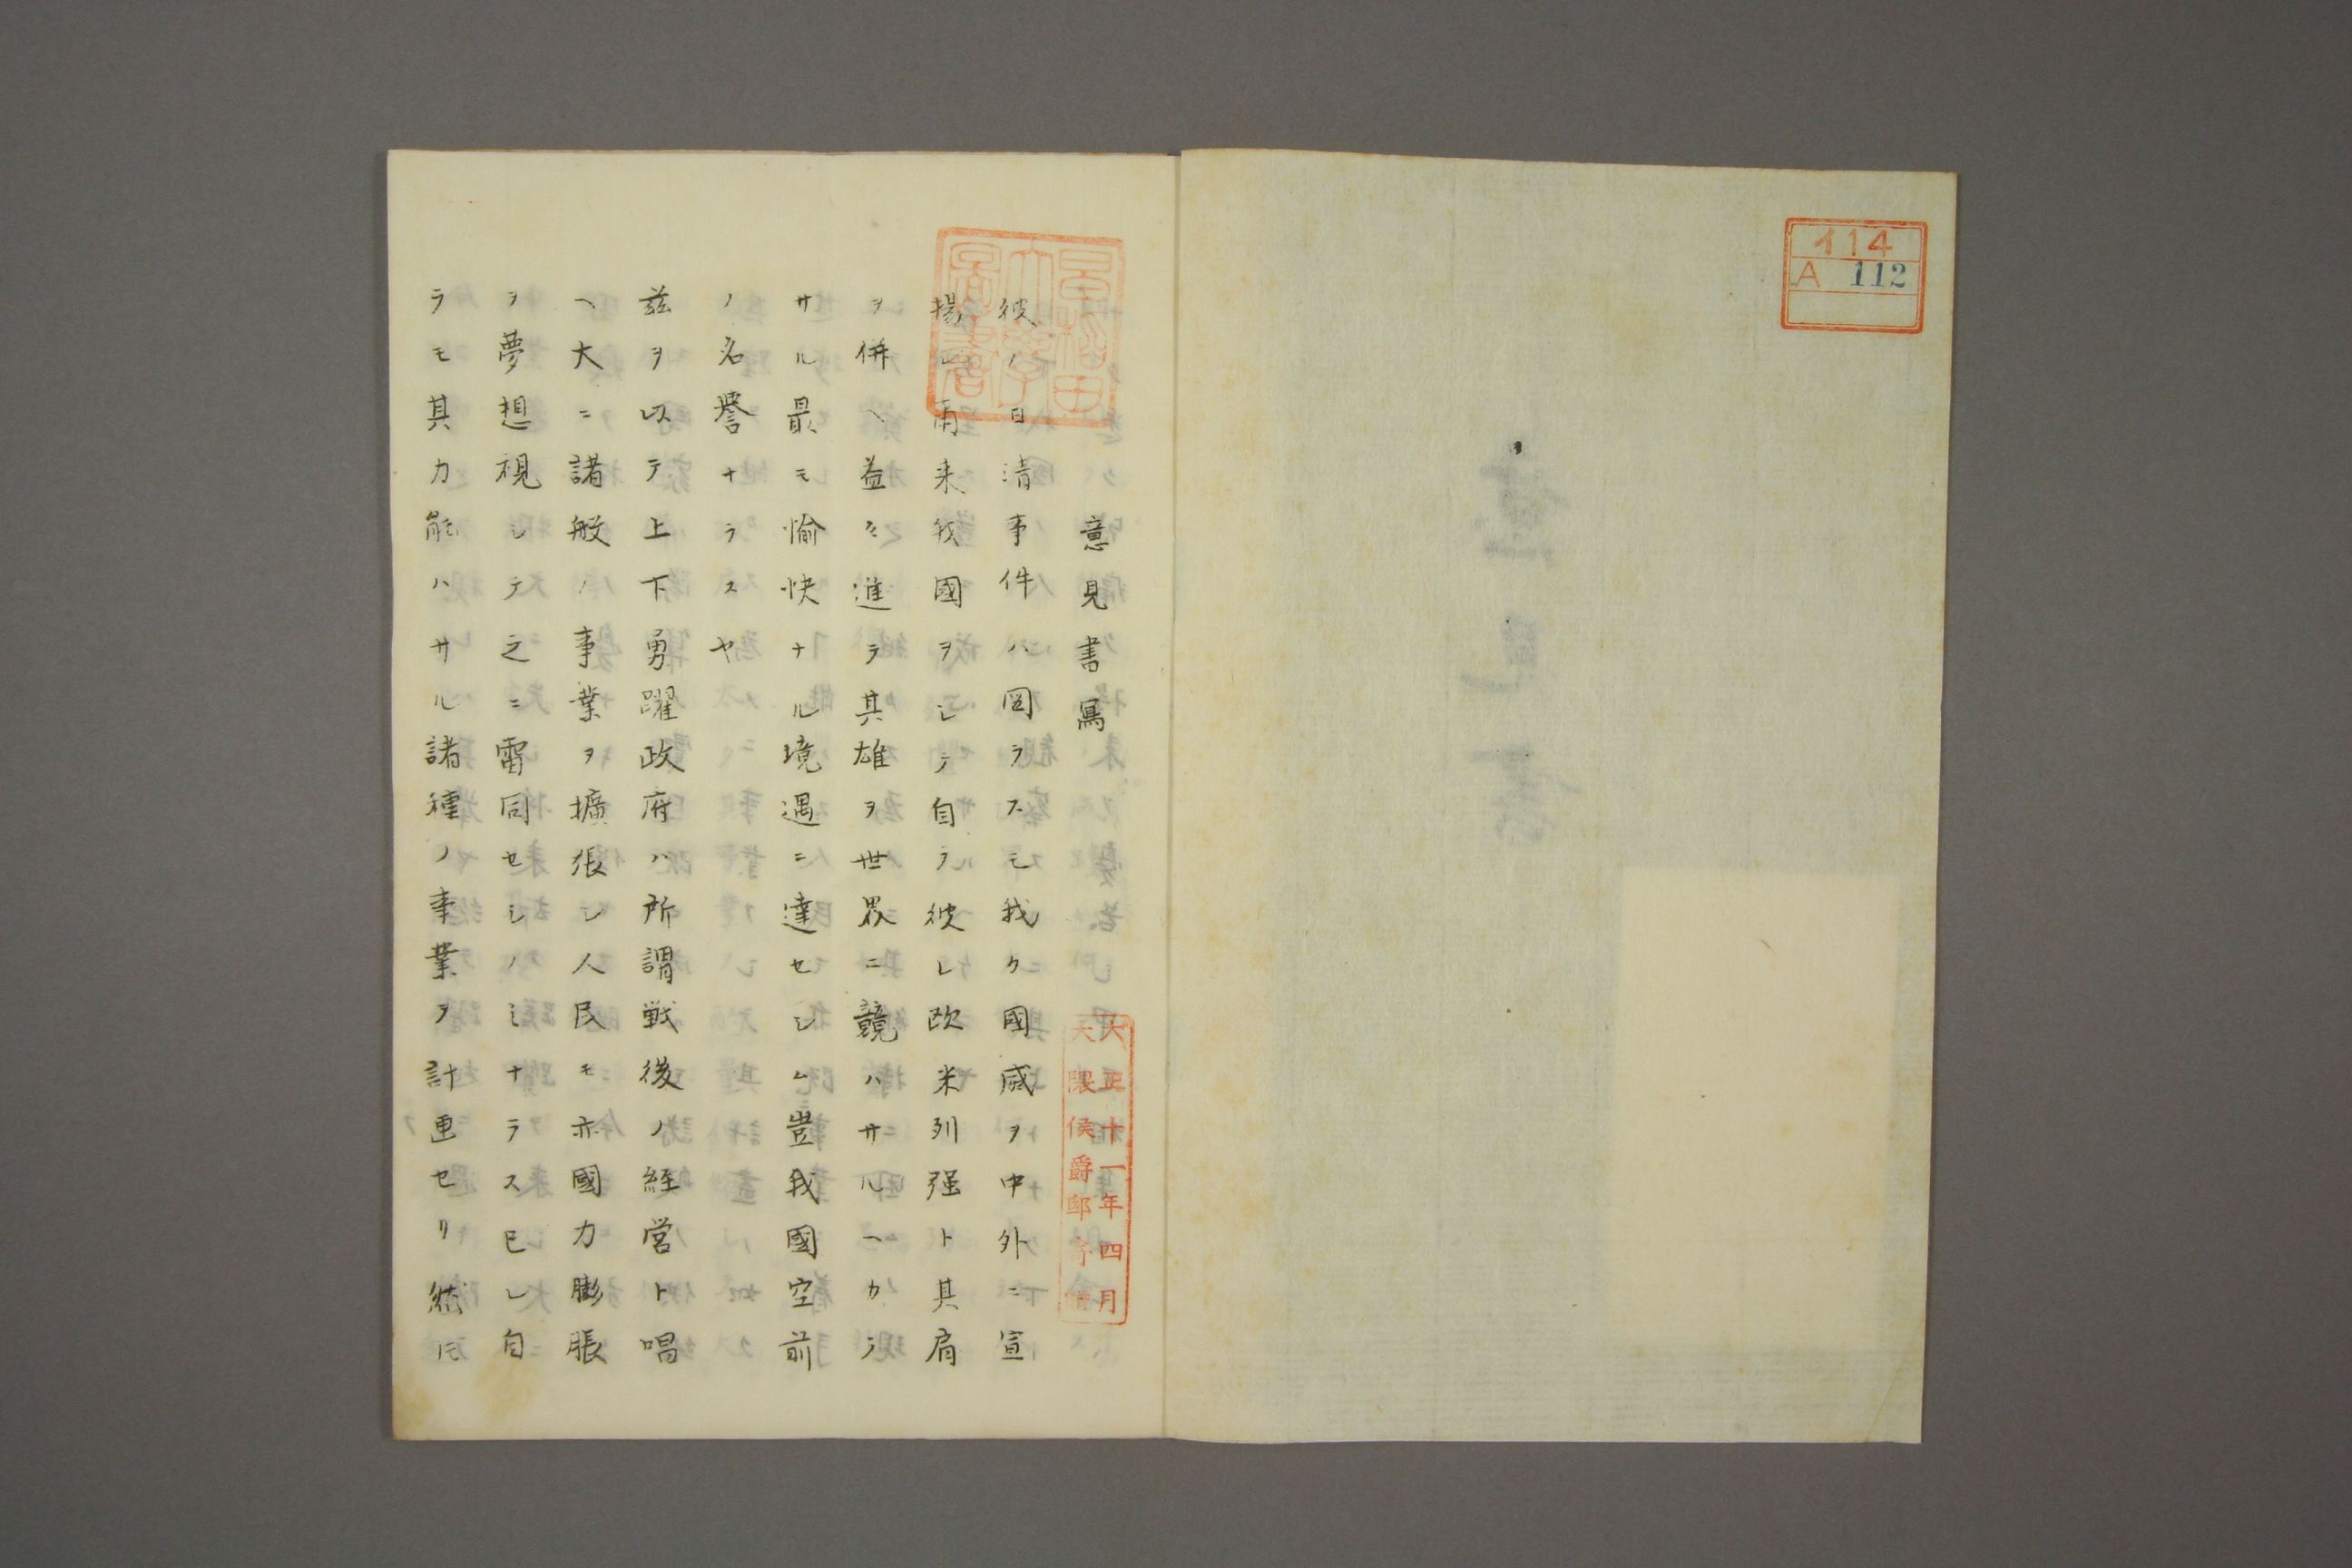 イ14
A 112
早稲田
大學
圖書
意見書寫
大正十一年四月
大隈侯爵邸寄贈
彼ノ日清事件ハ図ラスモ我ク國威ヲ中外ニ宣
揚シ爾来我國ヲシテ自ラ彼レ欧米列强ト其肩
ヲ併ヘ益々進ラ其雄ヲ世界ニ競ハサルヘカラ
サル最モ愉快ナル境遇ニ達セシム豈我國空前
ノ名譽ナラスヤ
茲ヲ以テ上下勇躍政府ハ所謂戦後ノ経営ト唱
ヘ大ニ諸般ノ事業ヲ擴張シ人民モ亦國力膨脹
ヲ夢想視シテ之ニ雷同セシノミナラス已レ自
ラモ其力能ハサル諸種ノ事業ヲ計画セリ然ㇳモ